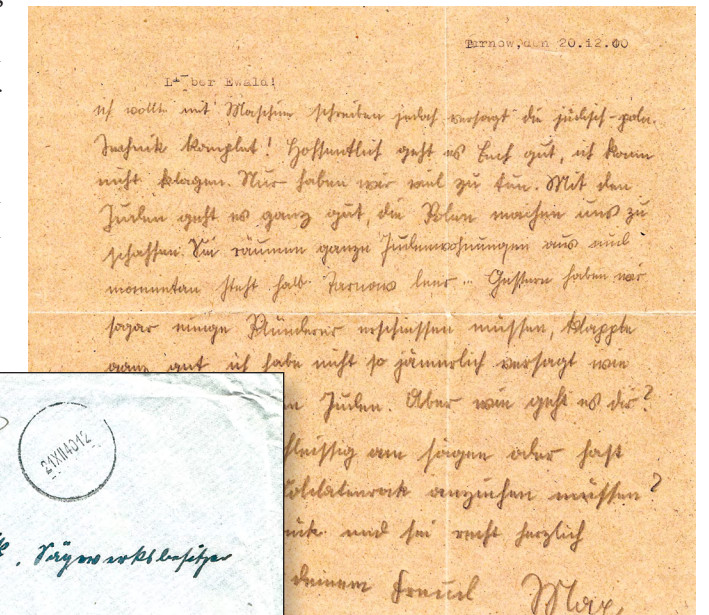 Tarnow, den 20.12.40
Lieber Ewald!
ich wollte mit Maschine schreiben jedoch versagt die jüdisch-poln.
Technik komplet! Hoffentlich geht es Euch gut, ich kann
nicht klagen. Nur haben wir viel zu tun. Mit den
Juden geht es ganz gut, die Polen machen uns zu
schaffen. Sie räumen ganze Judenwohnungen aus und
momentan steht halb Tarnow leer... Gestern haben wir
sogar einige Plünderer erschiessen müssen, klappte
ganz gut ich habe nicht so jämmerlich versagt wie
n Juden. Aber wie geht es dir?
fleissig am sägen oder hast
Soldatenrock anzuziehen müssen?
und sei recht herzlich
deinem Freund Max
21XII4012
k, Sägewerksbesitzer